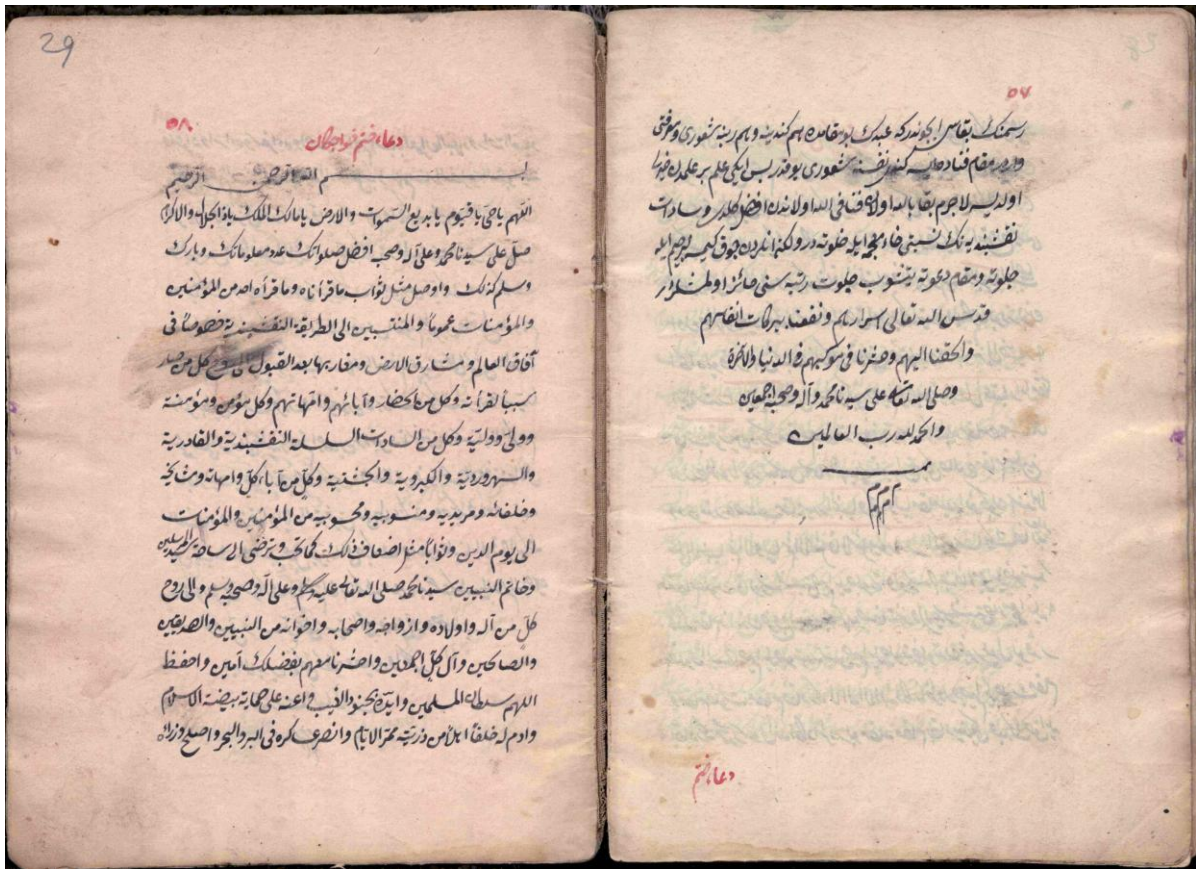 ٥٧
رسمنك بقاسى ايجوندركه عبدك بو مقامده هم كندينه وهم ربنه شعورى و معرفتى
واردر مقام فناده ايسه كندى نفسنه شعورى يوقدر پس ايكى علم بر علمدن خيرلى
اولديسه لاجرم بقا بالله اولان فنا فى الله اولاندن افضل كلدى و سادات
نقشبنديه نك نسبتى خلوته در ولكن اندن چوق كيمسه لر هم ايله
جلوته و مقام دعوته جلوت رتبه سنى حائز اولمشلردر
قدس الله تعالى اسرارهم ونفعنا ببركات انفاسهم
والحقنا اليهم وحشرنا فى موكبهم فى الدنيا والآخرة
وصلى الله تعالى على سيدنا محمد وآله وصحبه اجمعين
والحمد لله رب العالمين
م م م
دعاء ختم
29
٥٨
دعاء ختم خواجكان
بسم الله الرحمن الرحيم
اللهم ياحى ياقيوم يابديع السموات والارض يامالك الملك ياذا الجلال والاكرام
صل على سيدنا محمد وعلى آله وصحبه افضل صلواتك عدد معلوماتك وبارك
وسلم كذلك واوصل مثل ثواب ماقرأناه وماقرأه احد من المؤمنين
والمؤمنات عموماً والمنتسبين الى الطريقة النقشبندية خصوصاً فى
آفاق العالم ومشارق الارض ومغاربها بعد القبول كل من صار
سبباً لقرائته وكل من الحضار وآبائهم وامهاتهم وكل مؤمن ومؤمنة
وولى وولية وكل من السادات السلسلة النقشبندية والقادرية
والسهروردية والكبروية والجشتية وكل من آباء كل وامهاته ومشايخه
وخلفائه ومريديه ومنسوبيه ومحبوبيه من المؤمنين والمؤمنات
الى يوم الدين وثواباً مثل اضعاف ذلك كما تحب وترضى الى ساحة سيد المرسلين
وخاتم النبيين سيدنا محمد صلى الله تعالى عليه وسلم وعلى آله وصحبه وسلم والى روح
كل من آله واولاده وازواجه واصحابه واخوانه من النبيين والصديقين
والصالحين وآل كل اجمعين واحشرنا معهم بفضلك آمين واحفظ
اللهم سلطان المسلمين وايده بجنود الغيب واعنه على حماية بيضة الاسلام
وادم له خلفاً اهلاً من ذريته ممر الايام وانصر عساكره فى البر والبحر واصلح وزرائه